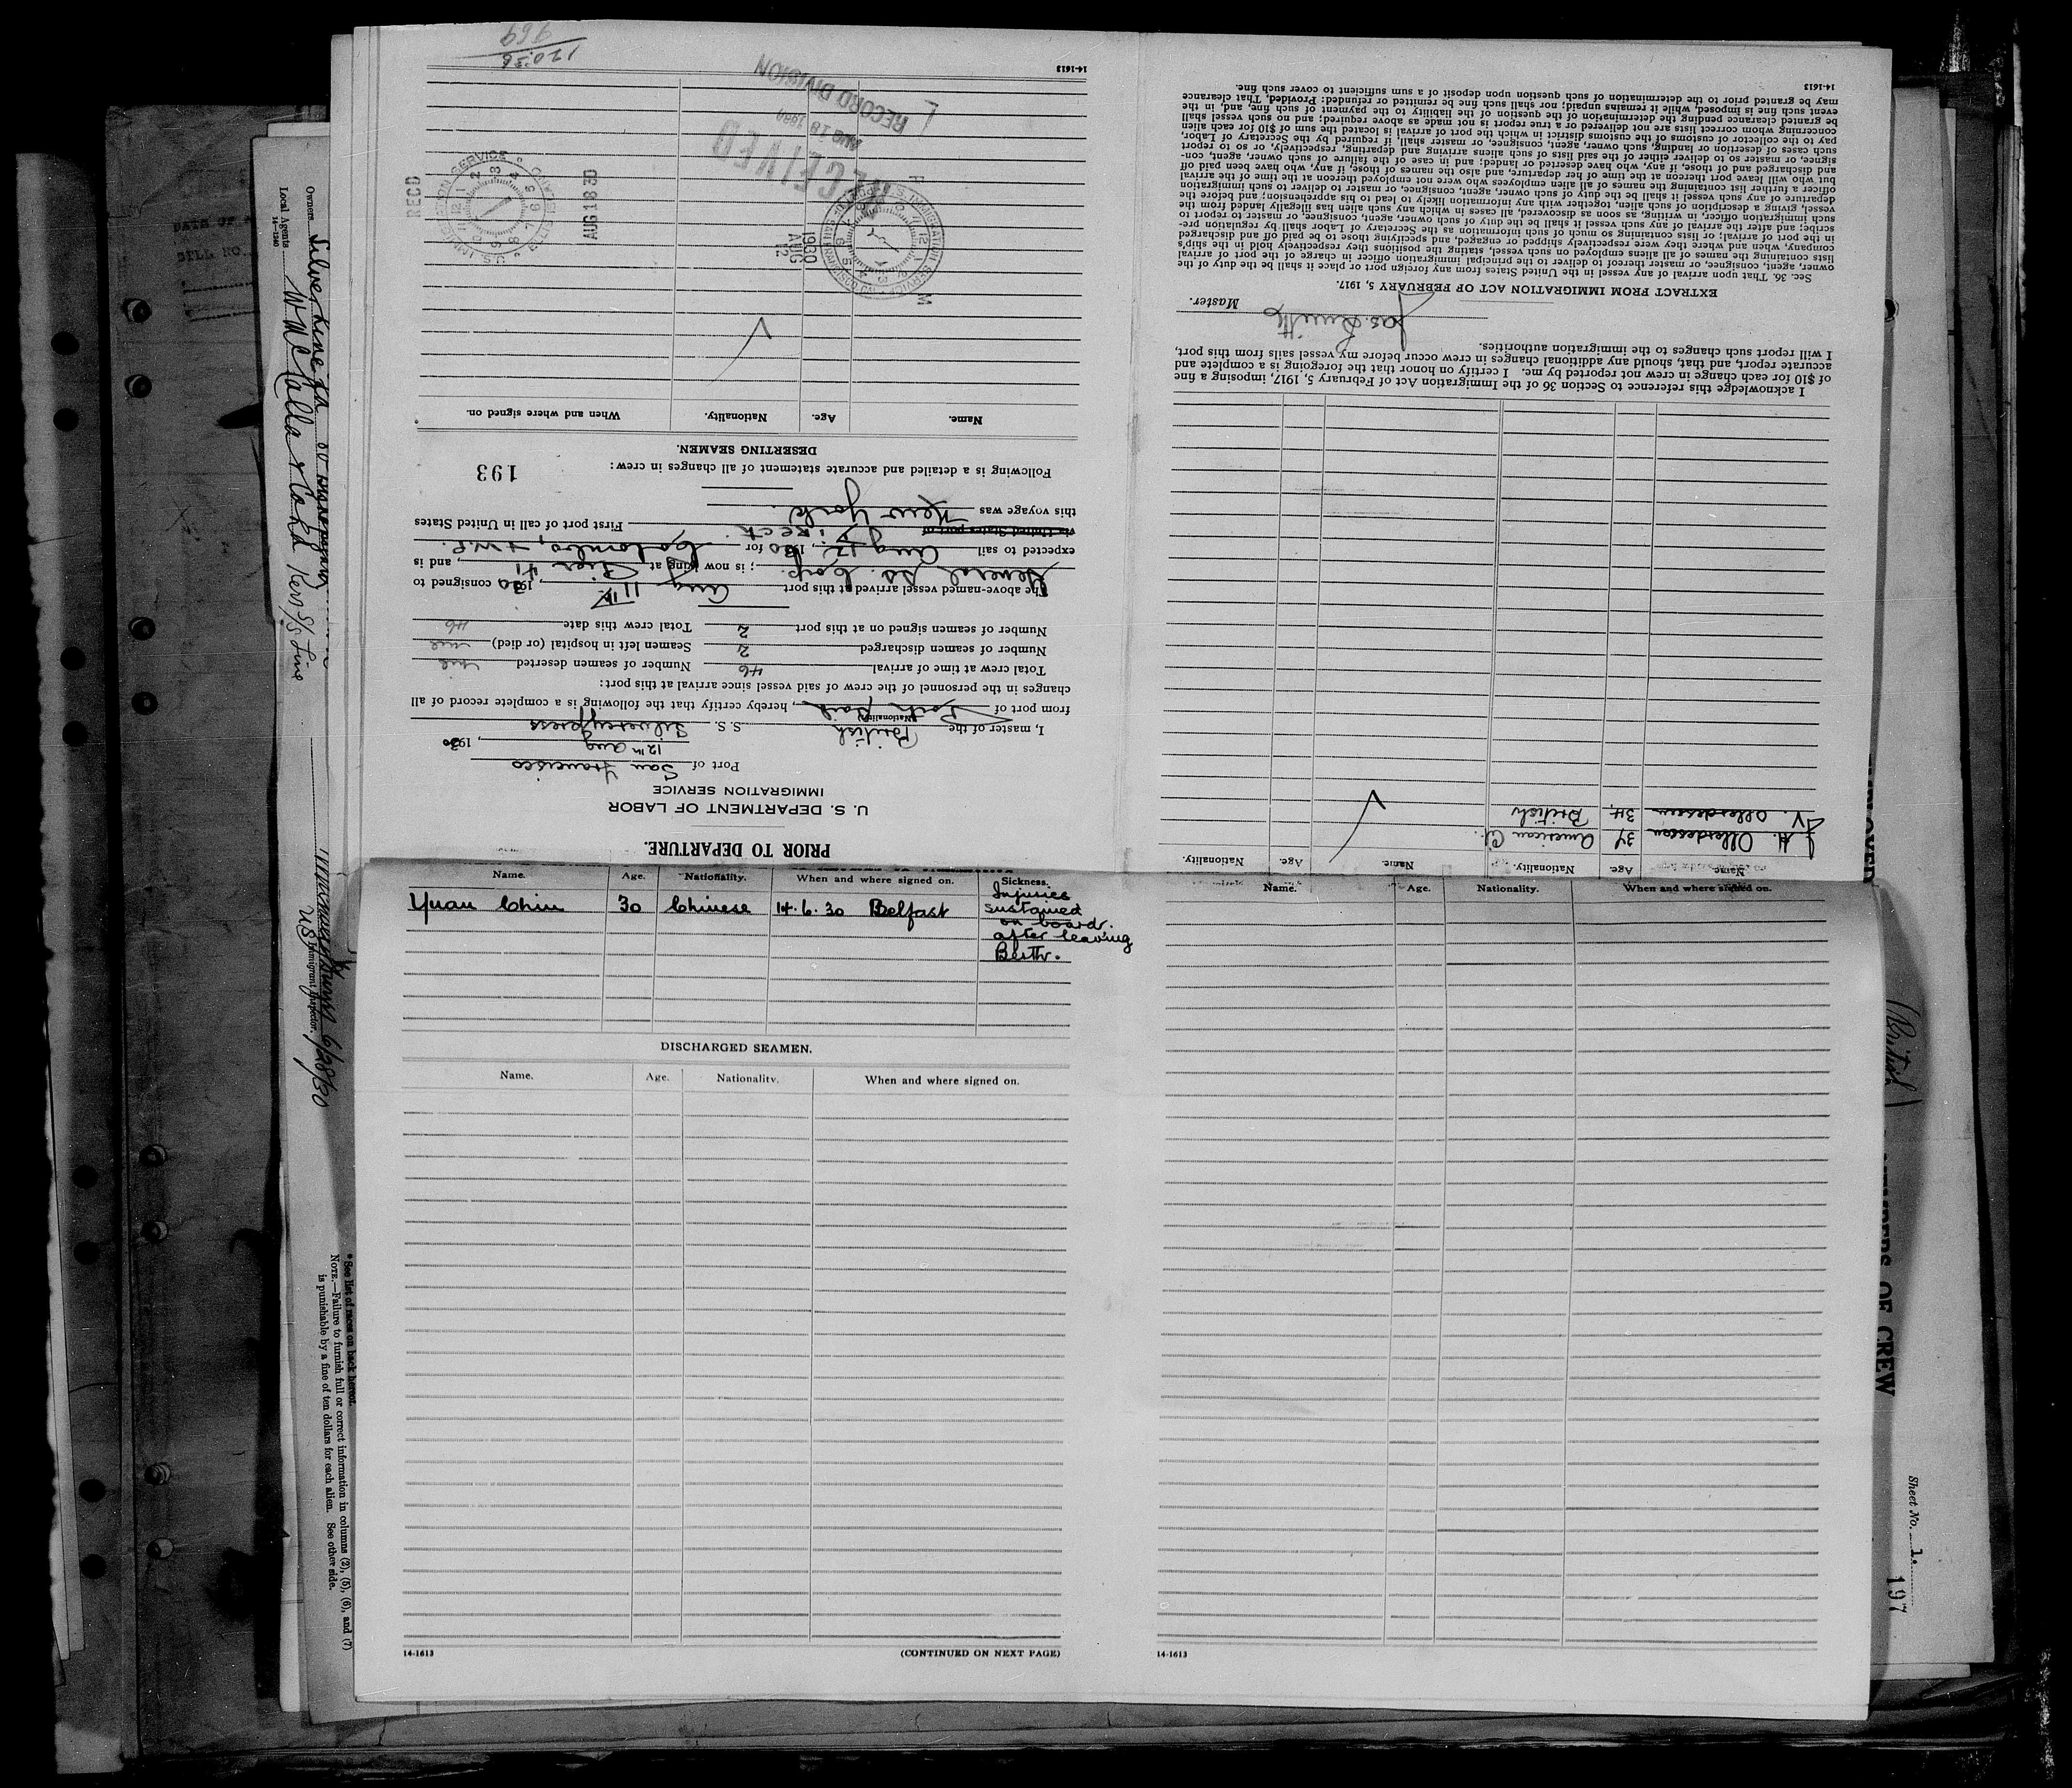 PRIOR TO DEPARTURE.
U. S. DEPARTMENT OF LABOR
IMMIGRATION SERVICE
Port of San Francisco
12th Aug, 1930
I, master of the British S. S. Silvercypress
(Nationality)
from port of , hereby certify that the following is a complete record of all
changes in the personnel of the crew of said vessel since arrival at this port:
Total crew at time of arrival 46 Number of seamen deserted nil
Number of seamen discharged 2 Seamen left in hospital (or died) nil
Number of seamen signed on at this port 2 Total crew this date 46
The above-named vessel arrived at this port Aug 11th, 1930 consigned to
General SS. Corp. ; is now lying at Pier 41, and is
expected to sail Aug 12, 1930 for Colombo, + W.P.
via United States port of Direct First port of call in United States
this voyage was New York.
Following is a detailed and accurate statement of all changes in crew:
193
DESERTING SEAMEN.
Name. Age. Nationality. When and where signed on.
1930 AUG 12
U.S. IMMIGRATION SERVICE
RECEIVED
AUG 18 1930
RECORD DIVISION
RECD
AUG 18 30
U.S. IMMIGRATION SERVICE
14-1613
12036
969
Name. Age. Nationality. Name. Age. Nationality.
J. H. Ollerdessen 37 American Ct.
V. Ollerdessen 34 British
I acknowledge this reference to Section 36 of the Immigration Act of February 5, 1917, imposing a fine
of $10 for each change in crew not reported by me. I certify on honor that the foregoing is a complete and
accurate report, and that, should any additional changes in crew occur before my vessel sails from this port,
I will report such changes to the immigration authorities.
Jas. Smith Master.
EXTRACT FROM IMMIGRATION ACT OF FEBRUARY 5, 1917.
Sec. 36. That upon arrival of any vessel in the United States from any foreign port or place it shall be the duty of the
owner, agent, consignee, or master thereof to deliver to the principal immigration officer in charge of the port of arrival
lists containing the names of all aliens employed on such vessel, stating the positions they respectively hold in the ship's
company, when and where they were respectively shipped or engaged, and specifying those to be paid off and discharged
in the port of arrival; or lists containing so much of such information as the Secretary of Labor shall by regulation pre-
scribe; and after the arrival of any such vessel it shall be the duty of such owner, agent, consignee, or master to report to
such immigration officer, in writing, as soon as discovered, all cases in which any such alien has illegally landed from the
vessel, giving a description of such alien, together with any information likely to lead to his apprehension; and before the
departure of any such vessel it shall be the duty of such owner, agent, consignee, or master to deliver to such immigration
officer a further list containing the names of all alien employees who were not employed thereon at the time of the arrival
but who will leave port thereon at the time of her departure, and also the names of those, if any, who have been paid off
and discharged and of those, if any, who have deserted or landed; and in case of the failure of such owner, agent, con-
signee, or master so to deliver either of the said lists of such aliens arriving and departing, respectively, or so to report
such cases of desertion or landing, such owner, agent, consignee, or master shall, if required by the Secretary of Labor,
pay to the collector of customs of the customs district in which the port of arrival is located the sum of $10 for each alien
concerning whom correct lists are not delivered or a true report is not made as above required; and no such vessel shall
be granted clearance pending the determination of the question of the liability to the payment of such fine, and, in the
event such fine is imposed, while it remains unpaid; nor shall such fine be remitted or refunded: Provided, That clearance
may be granted prior to the determination of such question upon deposit of a sum sufficient to cover such fine.
14-1613
Name. Age. Nationality. When and where signed on. Sickness.
Yuan Chin 30 Chinese 14.6.30 Belfast Injuries
sustained
on board.
after leaving
Berth.
DISCHARGED SEAMEN.
Name. Age. Nationality. When and where signed on.
14-1613 (CONTINUED ON NEXT PAGE)
Name. Age. Nationality. When and where signed on.
14-1613
Owners Silver Line
Local Agents
14-1240
Kerr S/S Line
6/28/30
U S Immigrant Inspector.
* See list of races on back hereof.
NOTE.—Failure to furnish full or correct information in columns (2), (5), (6), and (7)
is punishable by a fine of ten dollars for each alien. See other side.
BILL NO.
(British)
MEMBERS OF CREW
Sheet No. 1.
197